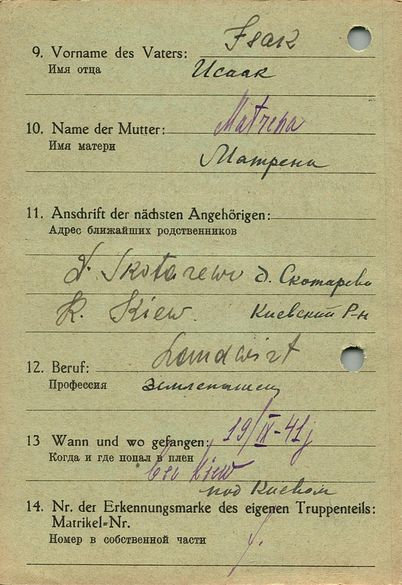 9. Vorname des Vaters: Isak
Имя отца Исаак
10. Name der Mutter: Matrena
Имя матери
Матрена
11. Anschrift der nächsten Angehörigen:
Адрес ближайших родственников
D. Skotarewo д. Скотарево
R. Kiew. Киевский Р-н
12. Beruf: Landwirt
Профессия землепашец
13 Wann und wo gefangen: 19/IX-41j
Когда и где попал в плен
bei Kiew
под Киевом
14. Nr. der Erkennungsmarke des eigenen Truppenteils:
Matrikel-Nr.
Номер в собственной части